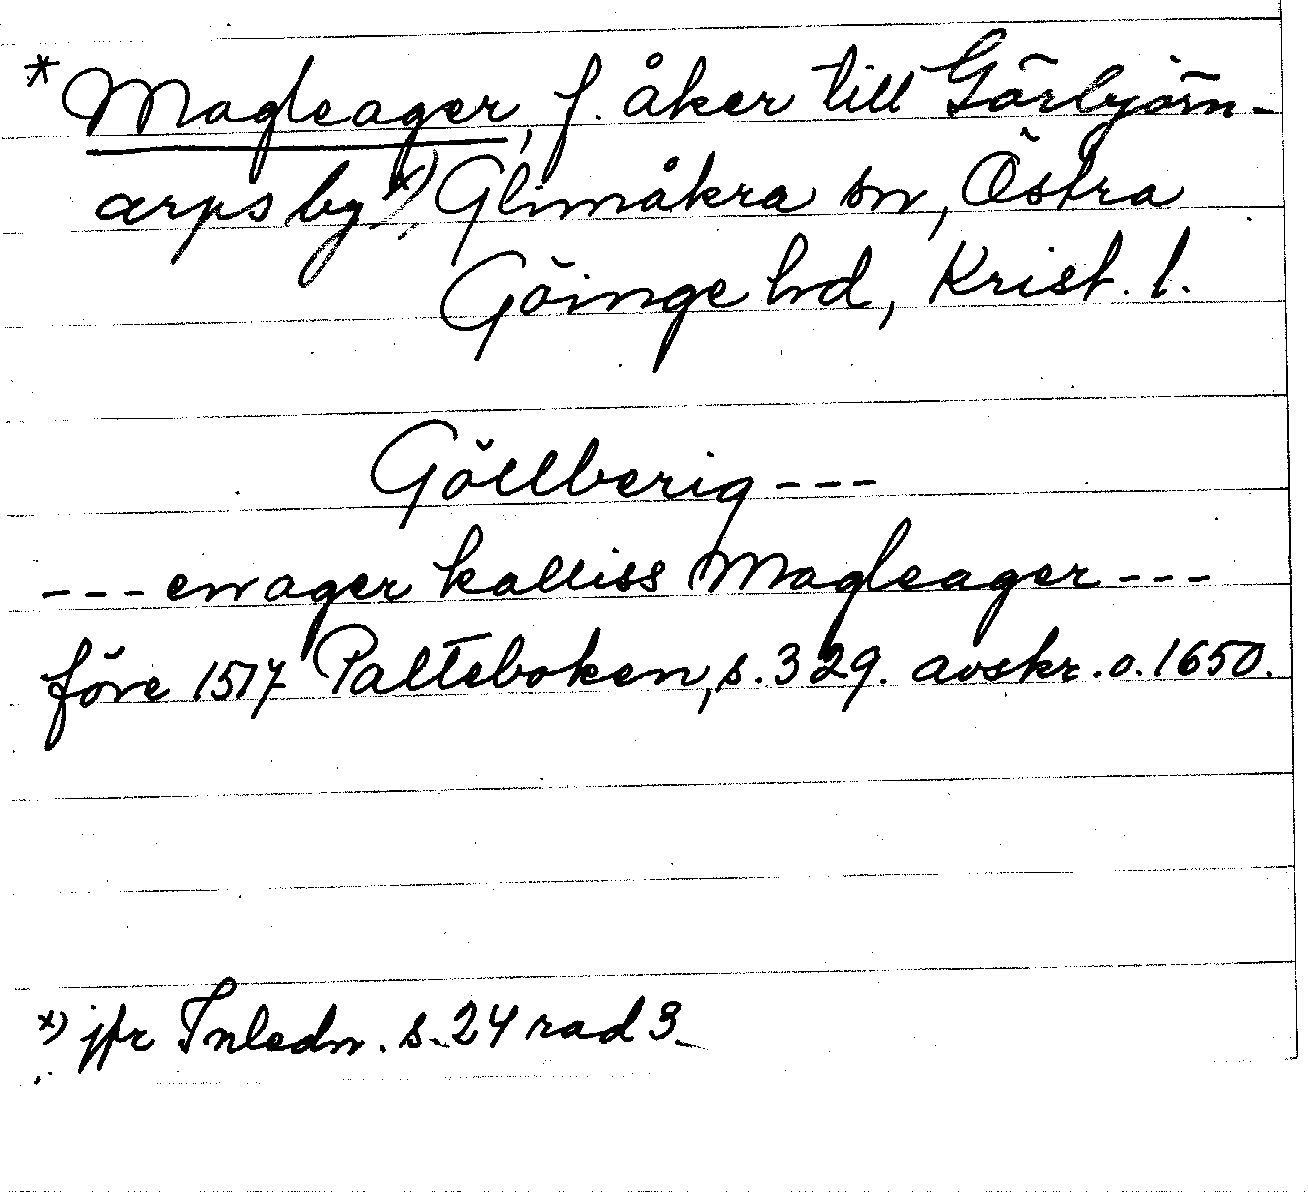 * Magleager, f. åker till Görbjörn-
arps by x), Glimåkra sn, Östra
Göinge hd, Krist. l.
Göllberig ---
--- en ager kalliss Magleager ---
före 1517 Palteboken, s. 329. avskr. o. 1650.
x) jfr Inledn. s. 24 rad 3.